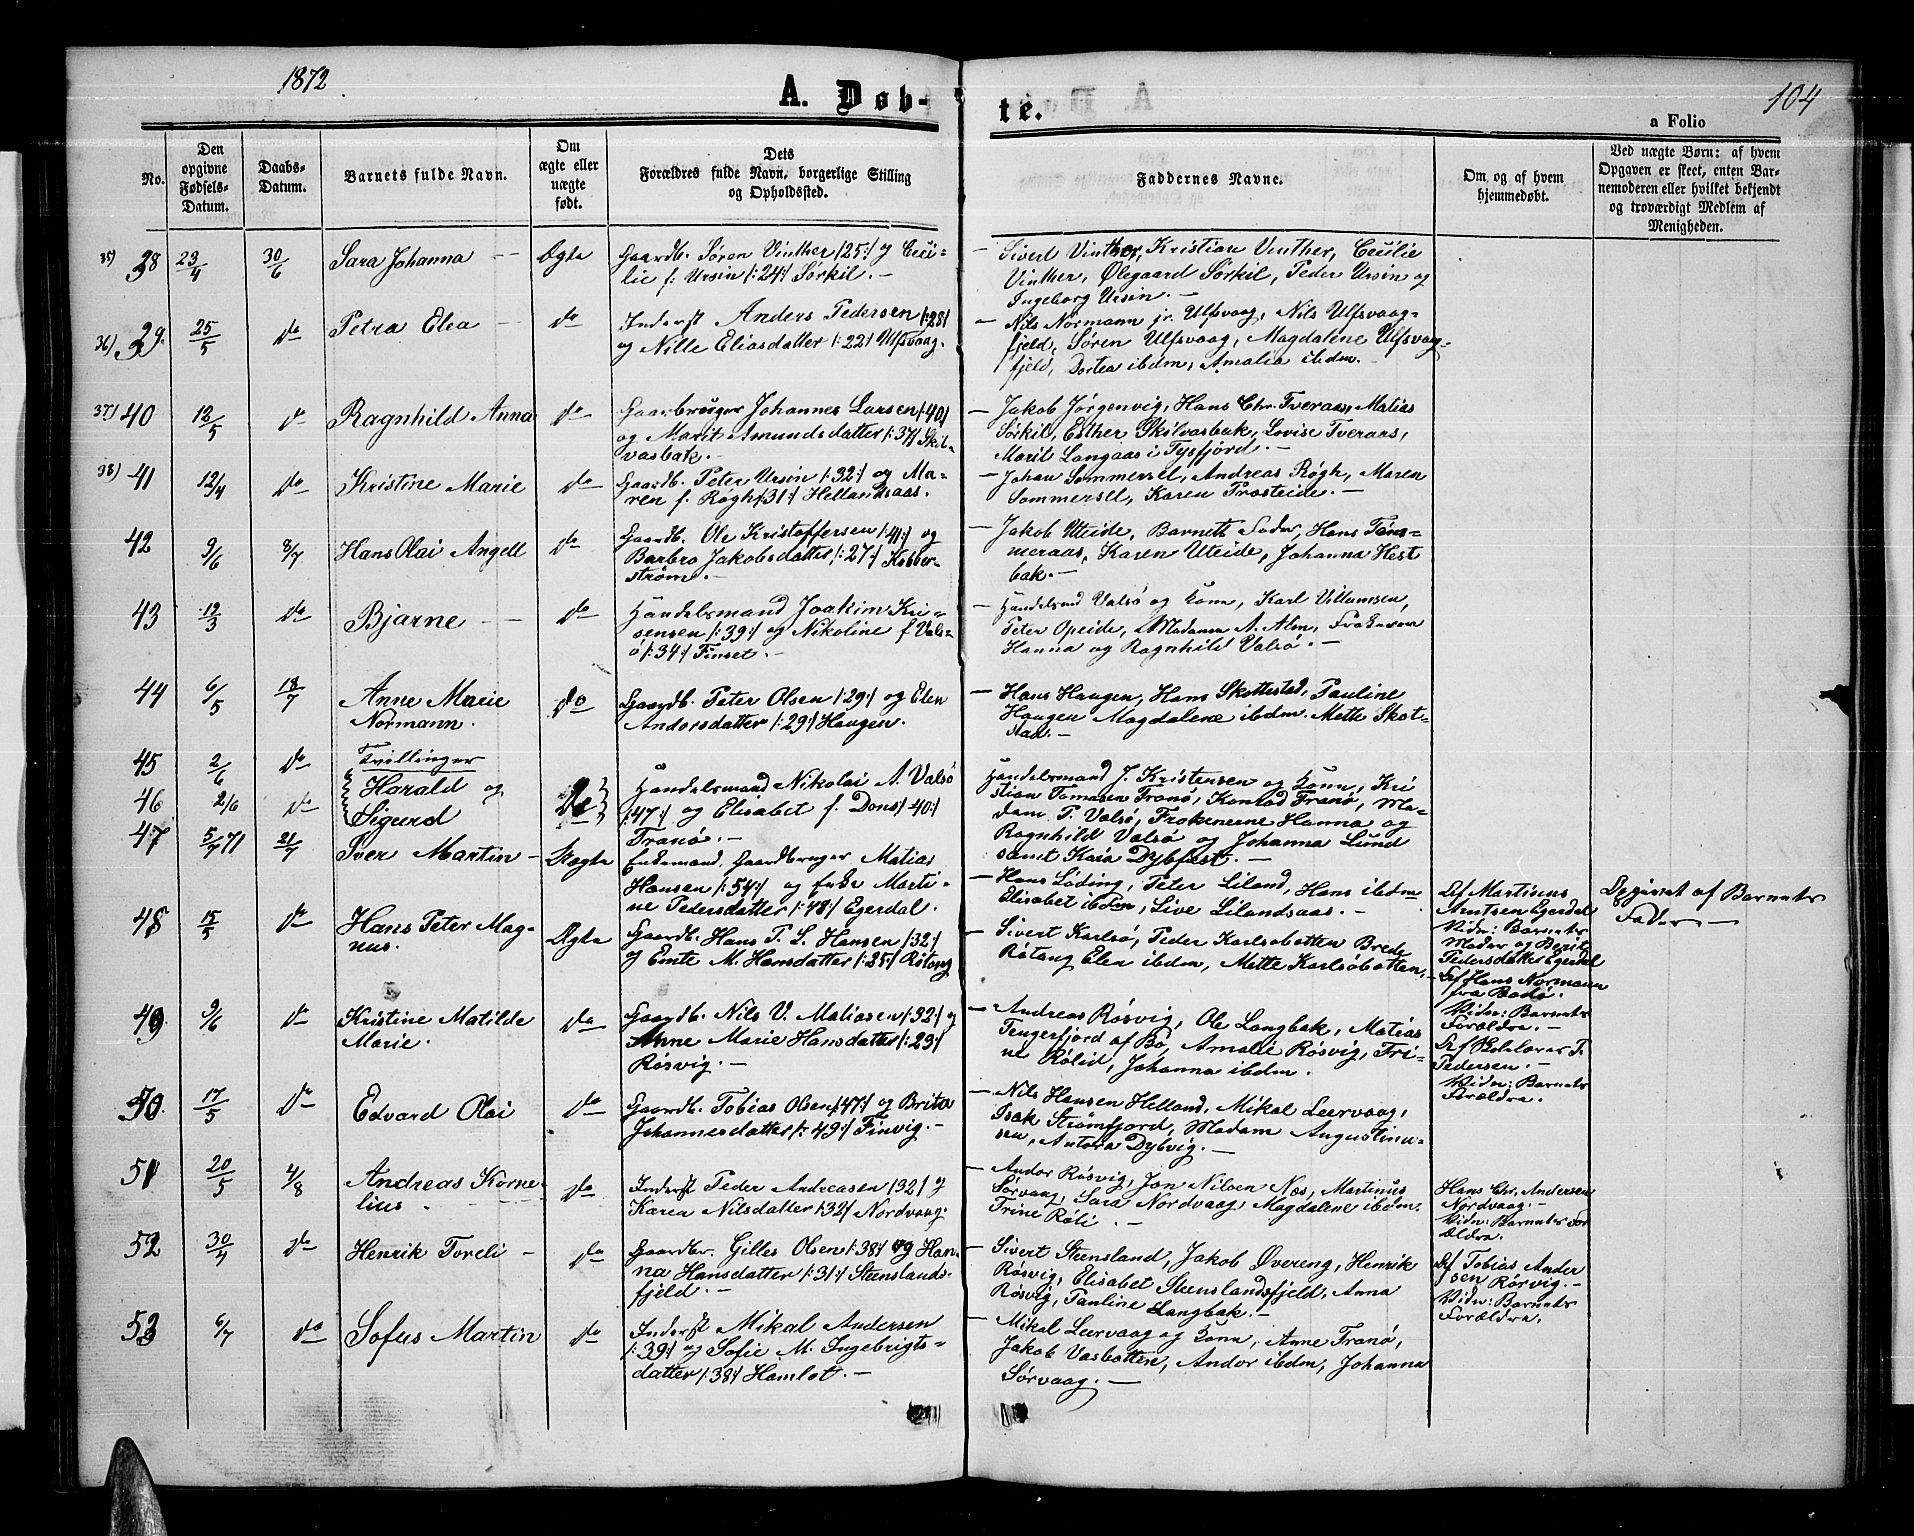 1872
A. Døb-
te.
104
a Folio
No.
Den opgivne Fødsels-Datum.
Daabs-Datum.
Barnets fulde Navn.
Om ægte eller uægte født.
Dets Forældres fulde Navn, borgerlige Stilling og Opholdssted.
Faddernes Navne.
Om og af hvem hjemmedøbt.
Ved uægte Børn: af hvem Opgaven er skeet, enten Barnemoderen eller hvilket bekjendt og troværdigt Medlem af Menigheden.
35) 38 23/4 30/6 Sara Johanna Ægte
Gaardb. Søren Vinther /25:/ og Ceci-
lie f: Ursin /:24:/ Sørkil.
Sivert Vinther, Kristian Vinther, Cecilie
Vinther, Ølegaard Sørkil, Peder Ursin og
Ingeborg Ursin.
36) 39. 25/5 do Petra Elea do
Inderst Anders Pedersen /:28/
og Nille Eliasdatter /:22:/ Ulfsvaag.
Nils Normann jr. Ulfsvaag, Nils Ulfsvaag-
fjeld, Søren Ulfsvaag, Magdalene Ulfsvaag-
fjeld, Dortea ibdm, Amalia ibdm.
37) 40 12/5 do Ragnhild Anna do
Gaarbruger Johannes Larsen /:40/
og Marit Amundsdatter /:37/ Skil-
vasbak.
Jakob Jørgenvig, Hans Chr. Tveraas, Matias
Sørkil, Esther Skilvasbak, Lovise Tveraas,
Marit Langaas i Tysfjord.
38) 41 12/4 do Kristine Marie do
Gaardb. Peter Ursin /:32:/ og Ma-
ren f. Røgh /31:/ Hellandsaas.
Johan Sommersel, Andreas Røgh, Maren
Sommersel, Karen Prosteide.
42 9/6 8/7 Hans Olai Angell do
Gaardb. Ole Kristoffersen /:41:/ og
Barbro Jakobsdatter /:27:/ Kobber-
strøm.
Jakob Uteide, Barnets Fader, Hans Tøm-
meraas, Karen Uteide, Johanna Hest
bak.
43 19/3 do Bjarne do
Handelsmand Joakim Kri-
sensen /:39:/ og Nikoline f Vals-
ø /:34:/ Finset.
Handelsmd Valsø og Kone, Karl Villumsen,
Peter Opeide, Madama A. Alm, Frøknerne
Hanna og Ragnhild Valsø.
44 6/5 18/7 Anne Marie
Normann. do
Gaardb. Peter Olsen /:29:/ og Elen
Andorsdatter /:29:/ Haugen.
Hans Haugen, Hans Skottestad, Pauline
Haugen Magdalene ibdm. Mette Skot-
stad.
45 2/6 do Tvillinger
Harald og
46 2/6 do Sigurd do
Handelsmand Nikolai A. Valsø
/47:/ og Elisabet f. Dons /:40:/
Tranø.
Handelsmand J. Kristensen og Kone, Kri
stian Tomasen Tranø, Konrad Tranø, Ma-
dam P. Valsø, Frøknerne Hanna og
Ragnhild Valsø og Johanna Lund
samt Kaia Dybfest.
47 5/7 71 21/7 Iver Martin Uægte
Enkemand, Gaardbruger Matias
Hansen /:54:/ og Enke Marti-
ne Pedersdatter /:48:/ Egerdal.
Hans Løding, Peter Liland, Hans ibdm
Elisabet ibdm, Live Lilandsaas.
Af Martinus
Arntsen Egerdal
Vidn: Barnets
Moder og Berit
Pedersdatter Egerdal
Opgivet af Barnets
Fader
48 15/5 do Hans Peter Mag-
nus. Ægte
Gaardb. Hans P. L. Hansen /:32:/
og Emte M. Hansdatter /:25:/ Røtang
Sivert Karlsø, Peder Karlsøbotten Brede
Røtang Elen ibdm, Mette Karlsøbotten,
Af Hans Normann
fra Bodø.
Vidn: Barnets
Forældre.
49. 9/6 do Kristine Matilde
Marie. do
Gaardb. Nils V. Matiasen /:32:/ og
Anne Marie Hansdatter /:29/
Røsvig.
Andreas Røsvig, Ole Langbak, Matias
Tengerfjord af Bø, Amalie Røsvig, Tri-
ne Rølid, Johanna ibdm.
Af Skolelærer P.
Pedersen.
Vidn: Barnets
Forældre.
50. 17/5 do Edvard Olai do
Gaardb. Tobias Olsen /:47:/ og Brita
Johannesdatter /:49:/ Finvig.
Nils Hansen Helland, Mikal Leervaag,
Isak Strømfjord, Madam Augustinu-
sen, Antora Dybvig.
51 20/5 4/8 Andreas Korne-
lius. do
Inderst Peder Andreasen /:32/ og
Karen Nilsdatter /:32/ Nordvaag.
Andor Røsvig, Jon Nilsen Næs, Martinus
Sørvaag, Sara Nordvaag, Magdalene ibdm.
Trine Røli.
Hans Chr. Andersen
Nordvaag.
Vidn: Barnets For
ældre.
52 30/4 do Henrik Toreli do
Gaardbr. Gilles Olsen /:38:/ og Han-
na Hansdatter /:31:/ Steenslands-
fjeld.
Sivert Steensland, Jakob Øvereng, Henrik
Røsvig, Elisabet Steenslandsfjeld, Anna
Røsvig, Pauline Langbak.
Af Tobias Ander
sen Rørvig.
Vidn: Barnets
Forældre.
53 6/7 do Sofus Martin do
Inderst Mikal Andersen
/:39:/ og Sofie M. Ingebrigts-
datter /:38:/ Hamlot.
Mikal Leervaag og Kone, Anne Tranø,
Jakob Vasbotten, Andor ibdm, Johanna
Sørvaag.